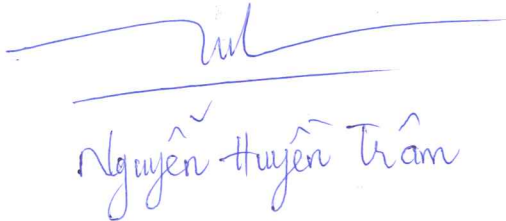 Nguyễn Huyền Trâm